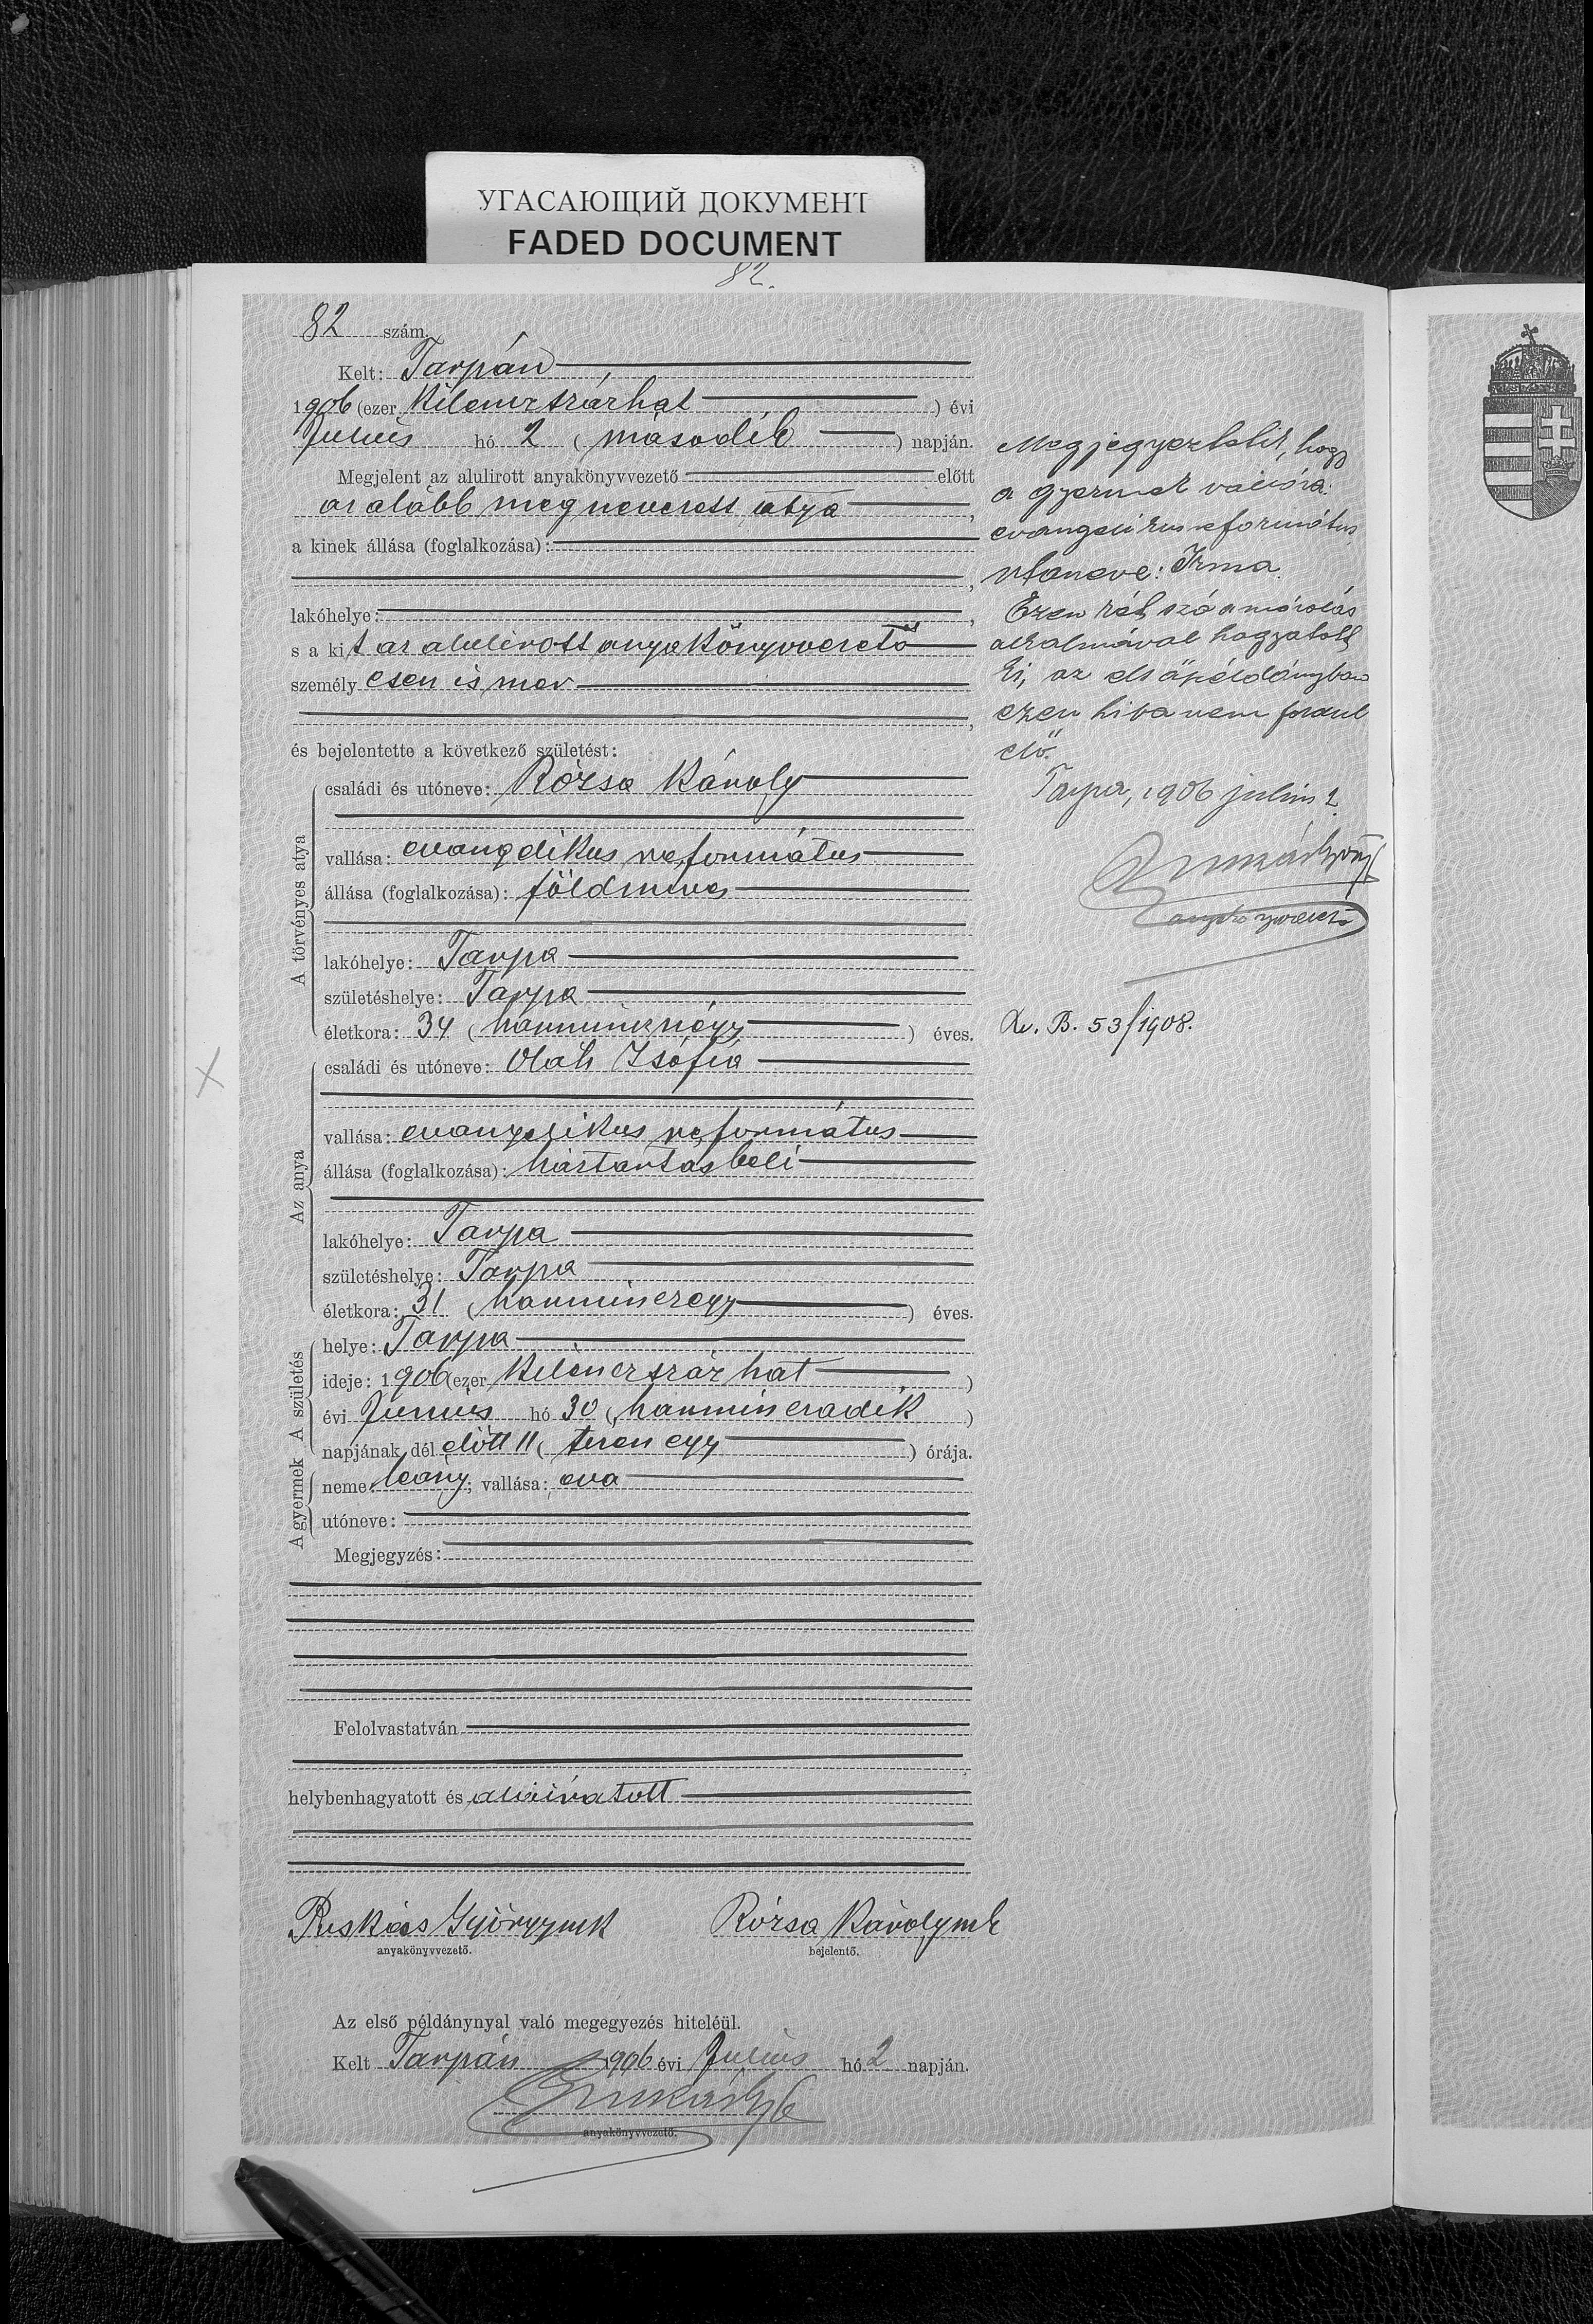 УГАСАЮЩИЙ ДОКУМЕНТ
FADED DOCUMENT
82.
82 szám.
Kelt: Tarpán
1906 (ezer kilenczszázhat ) évi
Julius hó 2 ( második ) napján.
Megjelent az alulirott anyakönyvvezető előtt
az alább megnevezett atya ,
a kinek állása (foglalkozása):
,
lakóhelye: ,
s a kit az alulírott anyakönyvvezető
személyesen ismer
,
és bejelentette a következő születést:
A törvényes atya
családi és utóneve: Rózsa Károly
vallása: evangelikus református
állása (foglalkozása): földmives
lakóhelye: Tarpa
születéshelye: Tarpa
életkora: 34 ( harmincznégy ) éves.
Az anya
családi és utóneve: Oláh Zsófia
vallása: evangelikus református
állása (foglalkozása): háztartásbeli
lakóhelye: Tarpa
születéshelye: Tarpa
életkora: 31 ( harminczegy ) éves.
A születés
helye: Tarpa
ideje: 1906 (ezer kilenczszáz hat )
évi Junius hó 30 ( harminczadik )
napjának dél előtt 11 ( tizenegy ) órája.
A gyermek
neme: leány; vallása: eva
utóneve:
Megjegyzés:
Felolvastatván
helybenhagyatott és aláiratott
Ruskács Györgynek Rózsa Károlymk
anyakönyvvezető. bejelentő.
Az első példánynyal való megegyezés hiteléül.
Kelt Tarpán 1906 évi Julius hó 2 napján.
anyakönyvvezető.
Megjegyeztetik, hogy
a gyermek vallása:
evangelikus református,
utoneve: Irma.
Ezen két szó a másolás
alkalmával hagyatott
ki, az első példányban
ezen hiba nem fordul
elő.
Tarpa, 1906 julius 2
anyakönyvvezető
B. 53/1908.